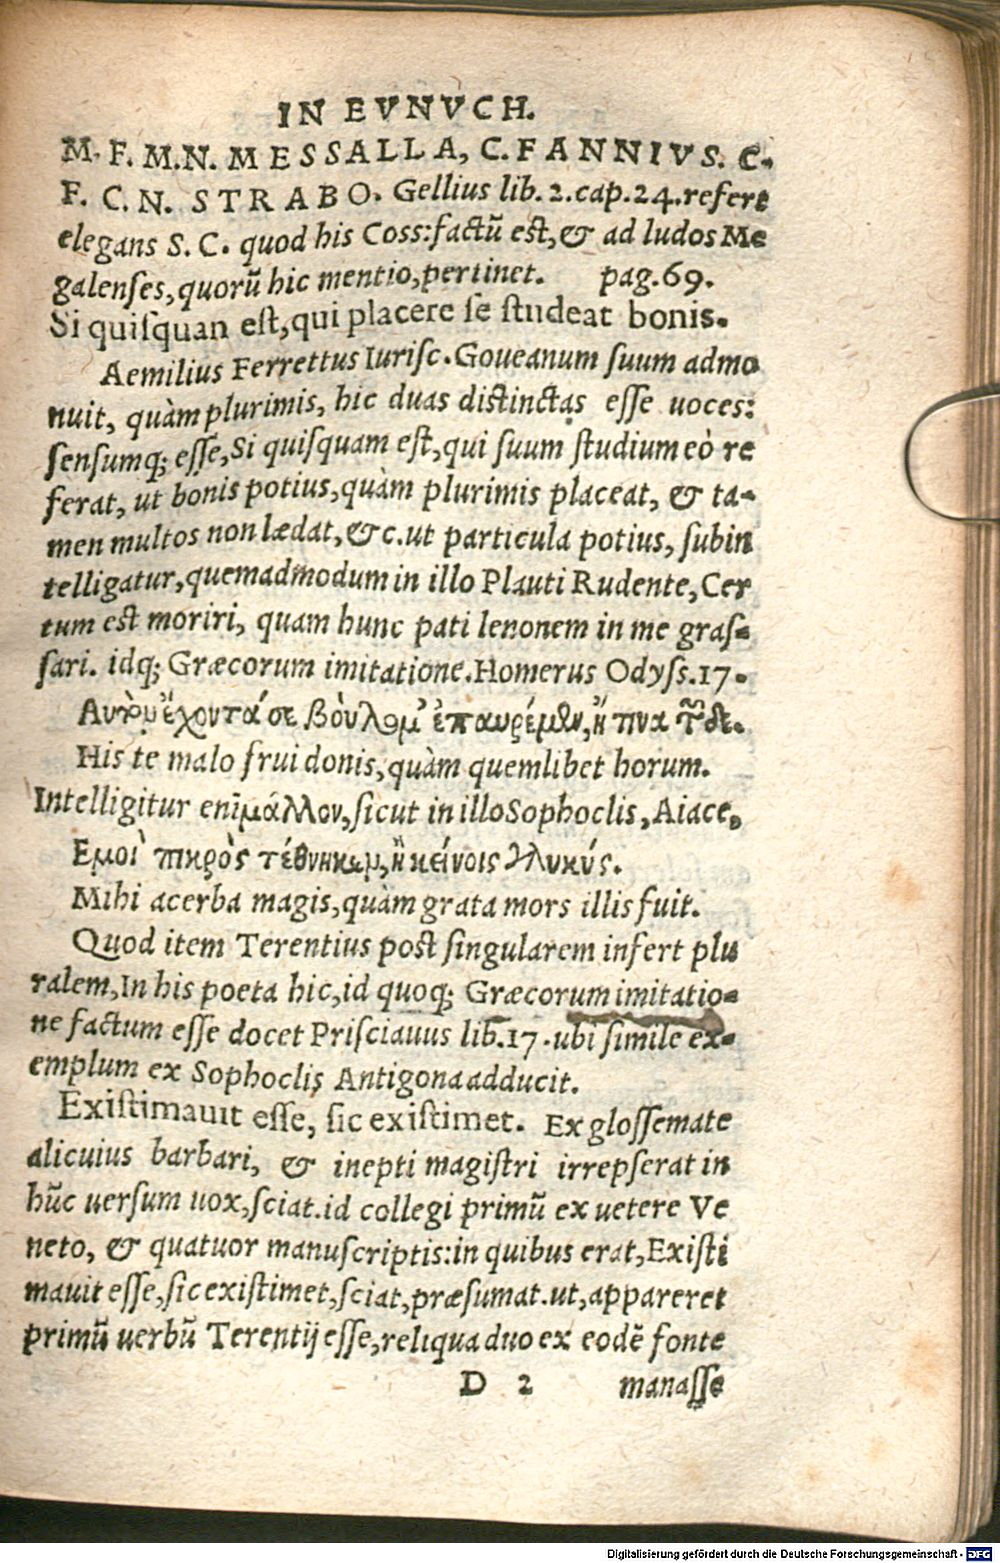 IN EVNVCH.
M. F. M.N. MESSALLA, C. FANNIVS. C.
F. C. N. STRABO. Gellius lib. 2. cap. 24. refert
elegans S. C. quod his Coss: factũ est, & ad ludos Me
galenses, quorũ hic mentio, pertinet. pag. 69.
Si quiſquan est, qui placere ſe ſtudeat bonis.
Aemilius Ferrettus Iuriſc. Goueanum ſuum admo
nuit, quàm plurimis, hic duas diſtinctas eſſe uoces:
ſenſumq; eſſe, Si quiſquam eſt, qui ſuum ſtudium eò re
ferat, ut bonis potius, quàm plurimis placeat, & ta-
men multos non lædat, &c. ut particula potius, ſubin
telligatur, quemadmodum in illo Plauti Rudente, Cer
tum eſt moriri, quam hunc pati lenonem in me graſ-
ſari. idq; Græcorum imitatione. Homerus Odyſſ. 17.
ἔχοντά σε βούλομ' ἐπαυρέμεν, ἤ
His te malo frui donis, quàm quemlibet horum.
Intelligitur enĩ μάλλον, ſicut in illo Sophoclis, Aiace,
Εμοὶ πικρὸς τέθνηκεν, ἢ κείνοις γλυκύς.
Mihi acerba magis, quàm grata mors illis fuit.
Quod item Terentius poſt ſingularem infert plu
ralem, In his poeta hic, id quoq; Græcorum imitatio-
ne factum eſſe docet Priſciauus lib. 17. ubi ſimile ex-
emplum ex Sophoclis Antigona adducit.
Exiſtimauit eſſe, ſic exiſtimet. Ex gloſſemate
alicuius barbari, & inepti magiſtri irrepſerat in
hũc uerſum uox, ſciat. id collegi primũ ex uetere Ve
neto, & quatuor manuſcriptis: in quibus erat, Exiſti
mauit eſſe, ſic exiſtimet, ſciat, præſumat. ut, appareret
primũ uerbũ Terentij eſſe, reliqua duo ex eodẽ fonte
D 2 manaſſe
Digitalisierung gefördert durch die Deutsche Forschungsgemeinschaft - DFG